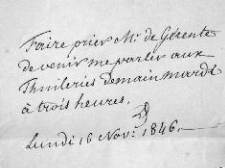 Faire prier Mr. de Gérente
de venir me parler aux
Thuileries demain mardi
à trois heures.
Lundi 16 Nov. 1846.